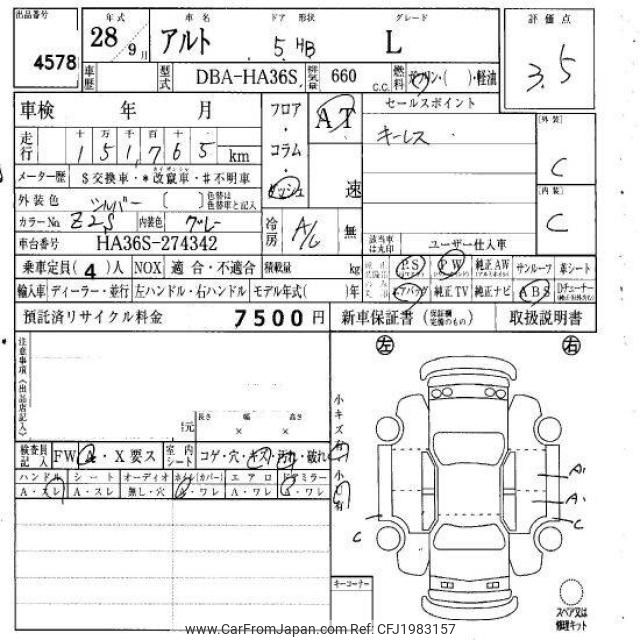 出品番号 年式 車名 ドア 形状 グレード 評価点
4578 28 9月 アルト 5 HB L 3.5
車歴 型式 DBA-HA36S 排気量 660 C.C. 燃料 ガソリン・( )・軽油
車検 年 月 フロア・コラム・ダッシュ AT 速 セールスポイント
キーレス
走行 十 万 千 百 十
1 5 1,7 6 5 km
[外装] C
メーター歴 $交換車・*改竄車・#不明車
[内装] C
外装色 シルバー [ ] 色替は色替車と記入
カラーNo Z2S 内装色 グレー 冷房 A/C 無
車台番号 HA36S-274342 該当車は丸印 ユーザー仕入車
乗車定員(4)人 NOX 適合・不適合 積載量 kg PS PW 純正AW サンルーフ 革シート
輸入車 ディーラー・並行 左ハンドル・右ハンドル モデル年式( )年 エアバッグ 純正TV 純正ナビ ABS Dチューナー
預託済リサイクル料金 7500円 新車保証書 (保証欄完備のもの) 取扱説明書
注意事項(出品店記入) 左 右
長さ 幅 高さ
× ×
小キズ有
検査員記入 FW A・X要ス 室内シート コゲ・穴・キズ・汚れ・破れ
小凹有
ハンドル シート オーディオ ホイル(カバー) エアロ ドアミラー
A・スレ A・スレ 無し・穴 A・ワレ A・ワレ A・ワレ
A1
A1
C C
キーコーナー
スペア又は修理キット
www.CarFromJapan.com Ref: CFJ1983157